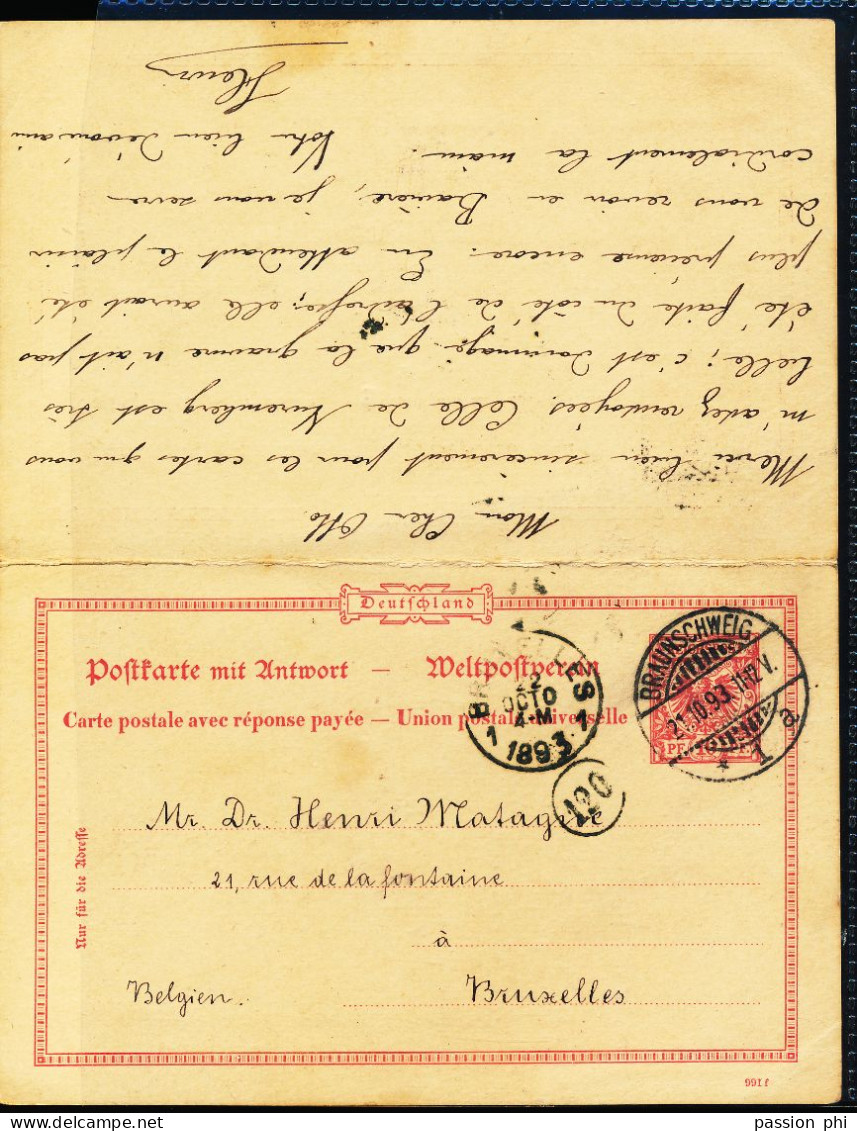 Mon Cher Otto
Merci bien sincèrement pour les cartes que vous
m'avez renvoyées. Celle de Nuremberg est très
belle; c'est dommage que la gravure n'ait pas
été faite du côté de l'adresse; elle aurait été
plus précieuse encore. En attendant le plaisir
de vous revoir en Bavière, je vous serre
cordialement la main.
Votre bien dévoué ami
Henri
Deutschland
Postkarte mit Antwort — Weltpostverein
Carte postale avec réponse payée — Union postale universelle
BRUXELLES
22
OCTO
4-M
1 1893 7
BRAUNSCHWEIG
21.10.93.11-12V.
* 1 a
PF
120
Nur für die Adresse
Mr. Dr. Henri Matagne
21, rue de la fontaine
à
Belgien. Bruxelles
991f
passion phi